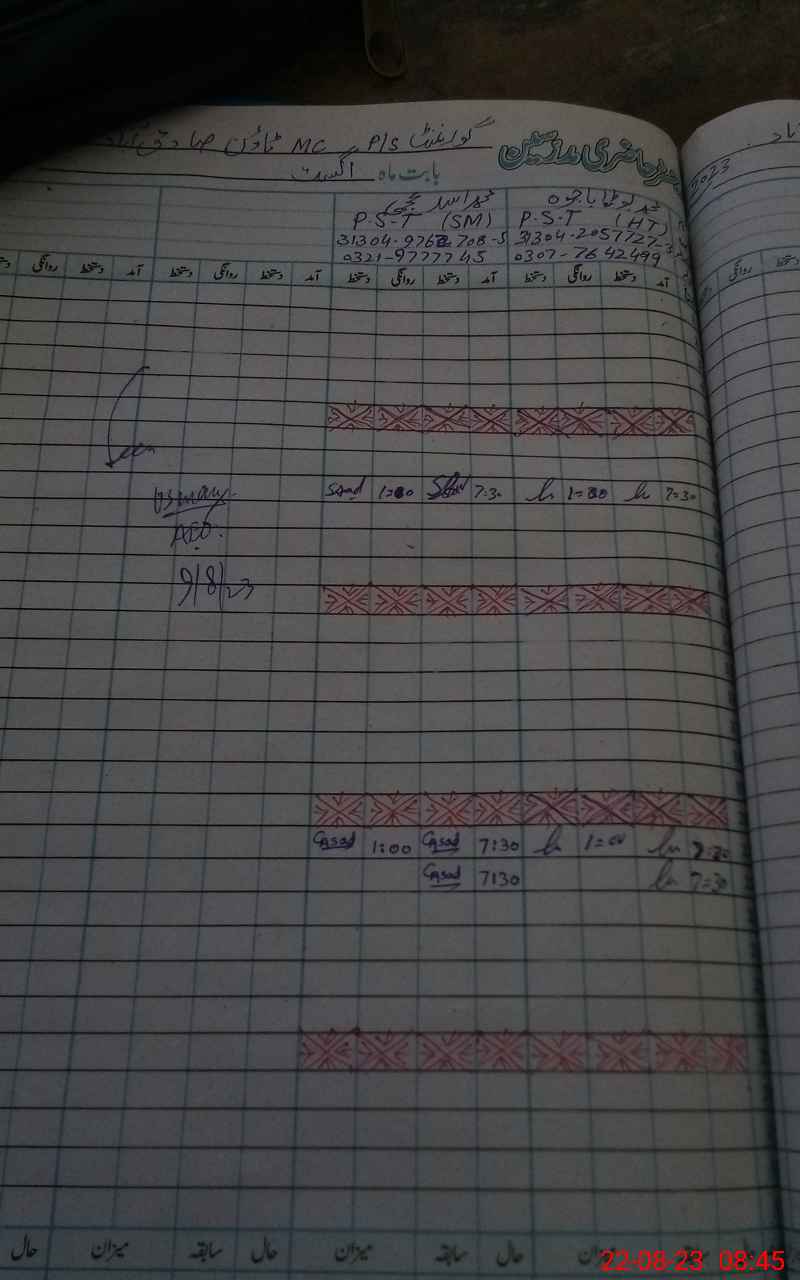 گورنمنٹ P/S MC ٹاؤن صادق آباد
رجسٹر حاضری مدرسین
بابت ماہ اگست
2023
محمد بوٹا باجوہ
P.S.T (HT)
31304-2057727-3
0307-7642499
محمد اسد
P.S.T (SM)
31304-9762708-5
0321-9777745
آمد دستخط روانگی دستخط آمد دستخط روانگی دستخط آمد دستخط روانگی دستخط آمد دستخط روانگی
Seen
Usman
AEO.
9/8/23
7:30 1:00 7:30 Asad 1:00 Asad
7:30 1:00 7:30 Asad 1:00 Asad
7:30 7:30 Asad
حال سابقہ میزان حال سابقہ میزان حال
22-08-23 08:45